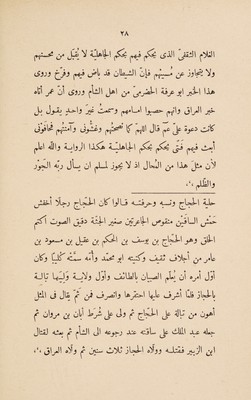 ٢٨
الغلام الثقفىّ الذى يحكم فيهم بحكم الجاهليّة لا يُقبل من محسنهم
ولا يتجاوز عن مُسيئهم فإنّ الشيطان قد باض فيهم وفرّخ وروى
هذا الخبر ابو عرفة الحضرمىّ من اهل الشأم وروى أنّ عمر أتاه
خبر العراق وانّهم حصبوا امامهم وسمعتُ غير واحدٍ يقول بل
كانت دعوة علىّ عمّ قال اللهمّ كما نصحتُهم وغشّونى وآمنتُهم فخافونى
أبعث فيهم فتًى يحكم بحكم الجاهليّة هكذا الرواية والله اعلم
لأن مثلَ هذا من المحال اذ لا يجوز لمسلم ان يسأل ربّه الجَوْر
والظُلْم
حلية الحجّاج ونسبه وحرفته قالوا كان الحجّاج رجلًا أخفش
حَمْشَ الساقَين منقوص الجاعرتين صغير الجثّة دقيق الصوت أكتم
الحَلق وهو الحجّاج بن يوسف بن الحكم بن عقيل بن مسعود بن
عامر من أحلاف ثقيف وكنيته ابو محمّد وأمّه سمّته كُليبًا وكان
أوّل أمره أن يُعلّم الصبيان بالطائف وأوّل ولاية وَلِيَها تبالة
بالحجاز فلمّا أشرف عليها احتقرها وانصرف فمن ثَمّ يقال فى المثل
أهون من تبالة على الحجّاج ثم ولى على شُرَط أبان بن مروان ثم
جعله عبد الملك على ساقته عند رجوعه الى الشأم ثم بعثه لقتال
ابن الزبير فقتله وولّاه الحجاز ثلاث سنين ثم ولّاه العراق